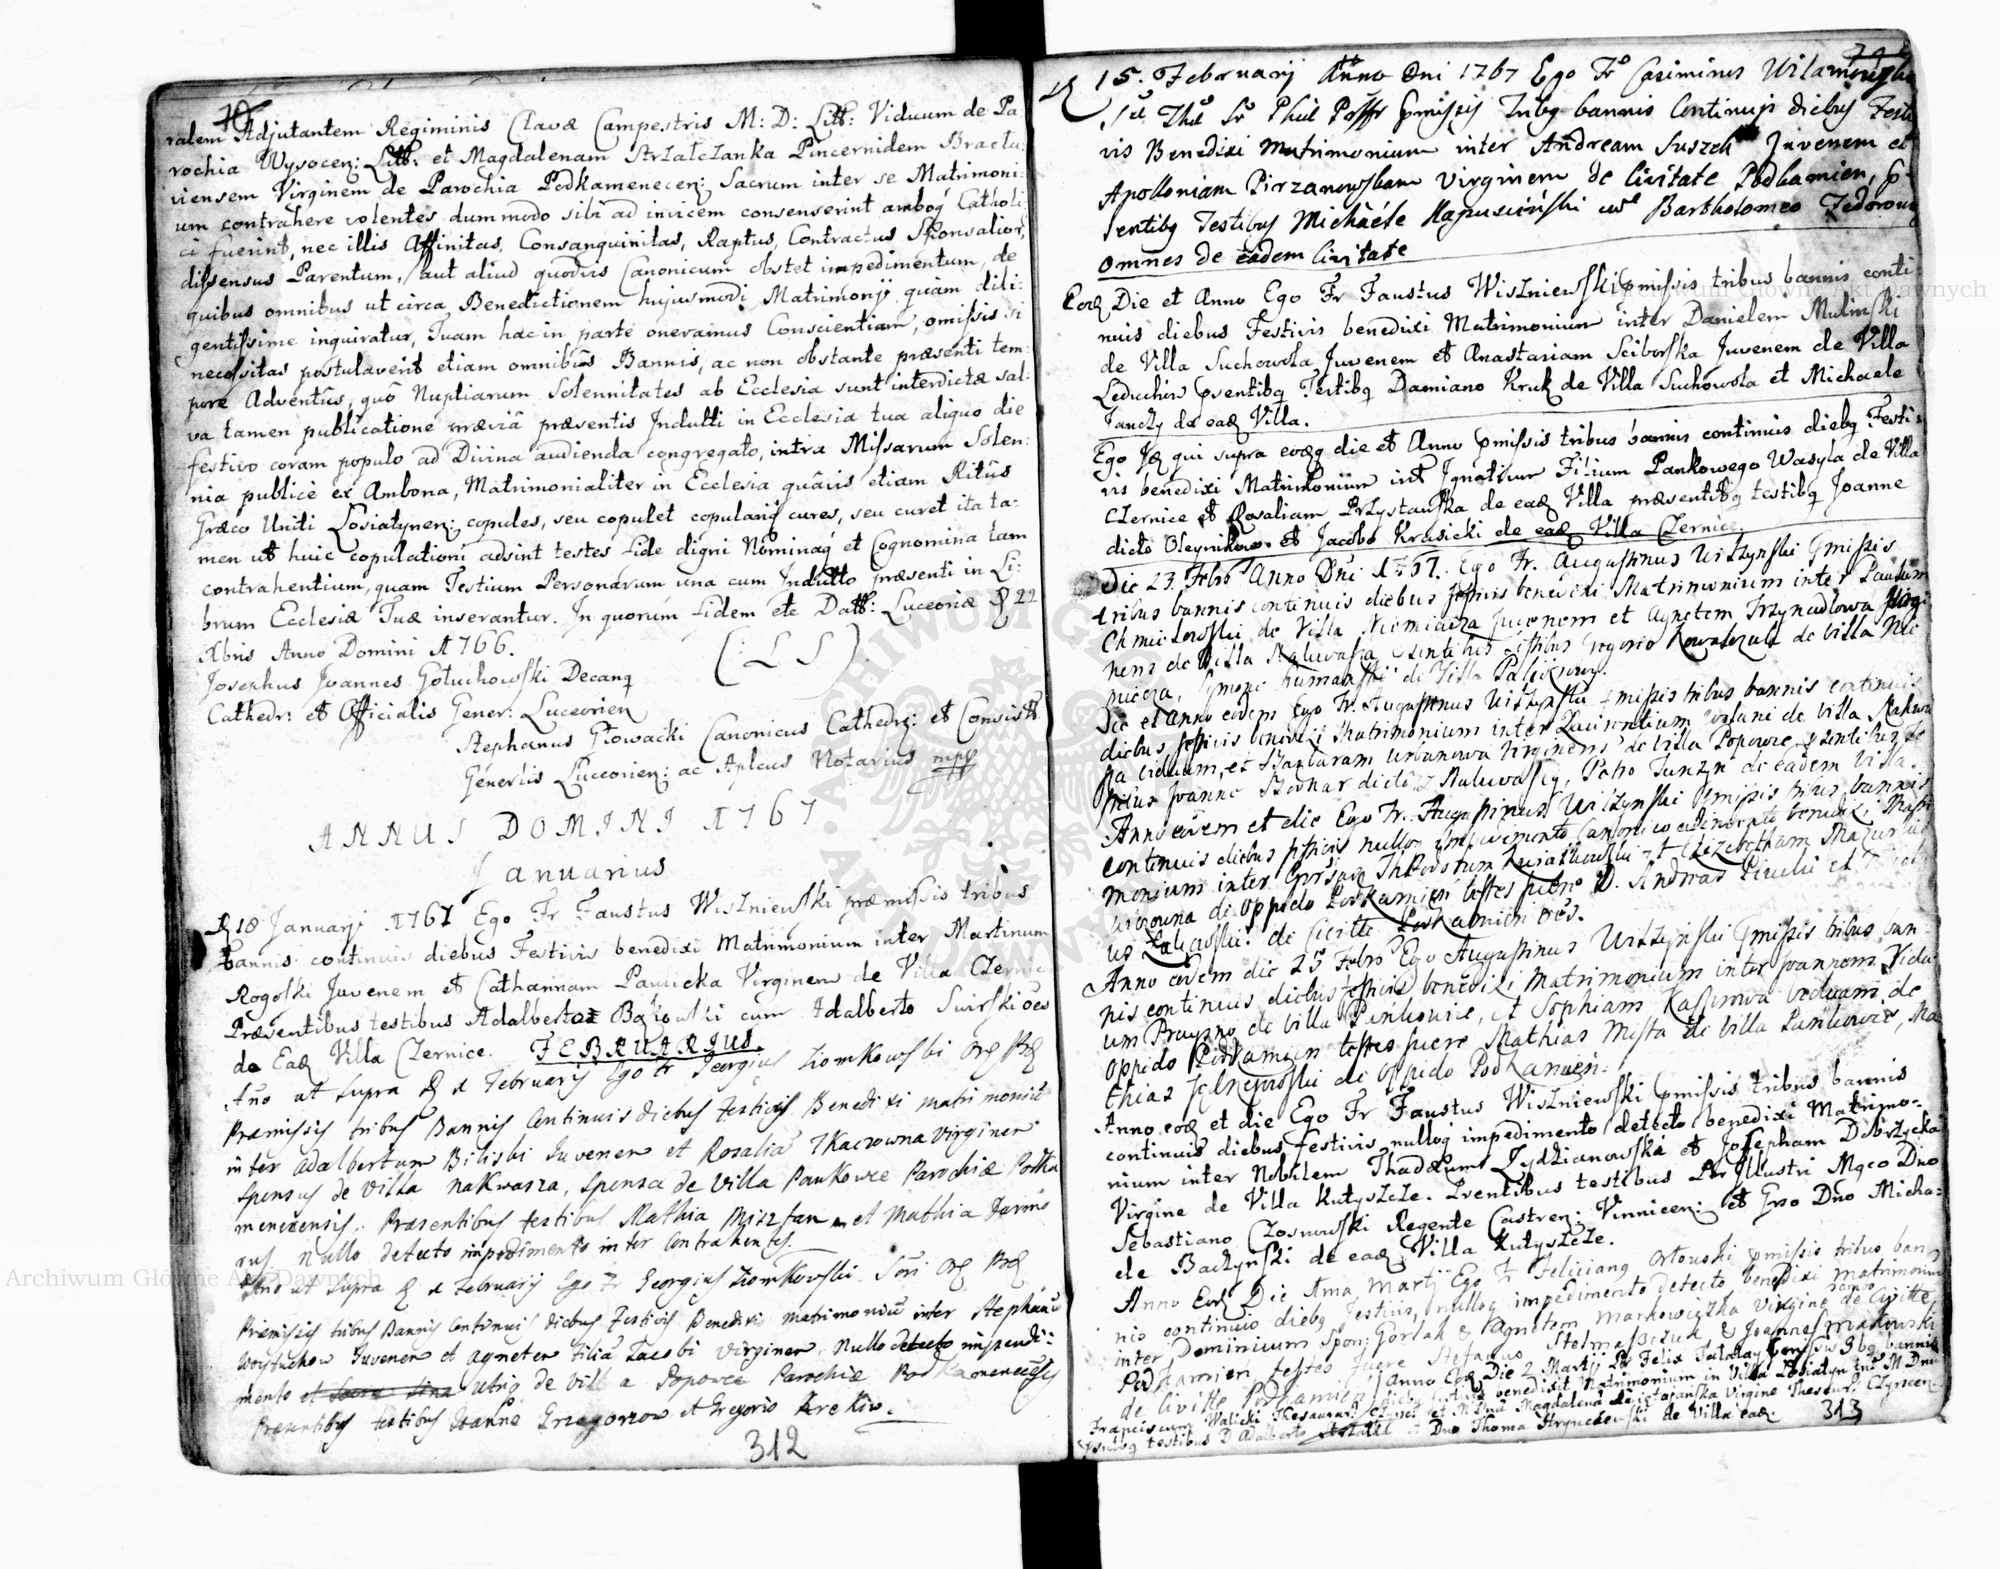 ralem Adjutantem Regiminis Clavæ Campestris M: D: Litt: Viduum de Pa
rochia Wysocen: Litt: et Magdalenam Strzałczanka Pincernidem Bracła:
viensem Virginem de Parochia Podkamenecen: Sacrum inter se Matrimoni:
um contrahere volentes, dummodo sibi ad invicem consenserint ambo Catholi:
ci fuerint, nec illis Affinitas, Consanguinitas, Raptus, Contractus Sponsalior,
dissensus Parentum, aut aliud quodvis Canonicum obstet impedimentum, de
quibus omnibus ut circa Benedictionem hujusmodi Matrimonij quam dili:
gentissime inquiratur, Tuam hac in parte oneramus Conscientiam, omissis si
necessitas postulaverit etiam omnibus Bannis, ac non obstante præsenti tem:
pore Adventûs, quô Nuptiarum Solennitates ab Ecclesia sunt interdictæ sal:
va tamen publicatione præviâ præsentis Indulti in Ecclesia tua aliquo die
festivo coram populo ad Divina audienda congregato, intra Missarum Solen:
nia publicè ex Ambona, Matrimonialiter in Ecclesia quâvis etiam Ritûs
Græco Uniti Łosiatynen: copules, seu copulet copulariq cures, seu curet ita ta:
men ut huic copulationi adsint testes fide digni Nominaq et Cognomina tam
contrahentium, quam Testium Personarum una cum Indulto præsenti in Li:
brum Ecclesiæ Tuæ inserantur. In quorum fidem etc Datt: Luceoriæ D 22
Xbris Anno Domini 1766.
(: L S )
Josephus Joannes Gołuchowski Decanq
Cathedr: et Officialis Gener: Luceorien
Stephanus Głowacki Canonicus Cathedr: et Consist
Generlis Luceorien: ac Aplcus Notarius mpp
ANNUS DOMINI 1767
Januarius
D 18 Januarij 1767 Ego Fr Faustus Wiszniewski præmissis tribus
bannis continuis diebus Festivis benedixi Matrimonium inter Martinum
Rogolski Juvenem et Catharinam Pawlicka Virginem de Villa Czernice
Præsentibus testibus Adalberto cum Adalberto Swirski oes
de Ead Villa Czernice. FEBRUARIUS.
Ano ut supra D 1 February Ego fr Georgius Ziomkowski Ord Præd
Præmissis tribus Bannis Continuis diebus festivis Benedixi matrimoniu
inter Adalbertum Biliski Juvenem et Rosalia Tkaczowna virginem
Sponsus de villa nakwasza, Sponsa de Villa Pankowce Parochiæ Podka
menecensis. Præsentibus testibus Mathia Misztan et Mathia
nullo detecto impedimento inter Contrahentes.
Ano ut supra D 1 February Ego Fr Georgius Ziomkowski Ord Præd
Præmissis tribus Bannis Continuis diebus Festivis Benedixi matrimoniu inter Stephanu
Woytuchow Juvenem et Agnetem filia Jacobi Virginem, Nullo detecto impedi:
mento utriq de Villa Popowce Parochiæ Podkamenecensis
Præsentibus testibus Joanne Grzegorzow et Gregorio Krekiw.
312
D 15. Februarij Anno Dni 1767 Ego Fr Casimirus Wilamowski
Sæ Thæ Lr Phiæ Præmissis Tribq bannis Continuis diebus Festi
vis Benedixi Matrimonium inter Andream Suszek Juvenem et
Apolloniam Pirzanowskam Virginem de Civitate Podkamien, p-
sentibq Testibus Michaële Kapuscinski et Bartholomeo Fedorow
omnes de eadem Civitate
Eod Die et Anno Ego Fr Faustus Wiszniewski pmissis tribus bannis conti:
nuis diebus Festivis benedixi Matrimonium inter Danielem Mulinski
de Villa Suchowola Juvenem et Anastasiam Sciborska Juvenem de Villa
Leduchin psentibq Testibq Damiano Kruk de Villa Suchowola et Michaele
Janczy de ead Villa.
Ego Id qui supra eodq die et Anno pmissis tribus bannis continuis diebq Festi:
vis benedixi Matrimonium int Ignatium Filium Pankowego Wasyla de Villa
Czernice et Rosaliam Przystauska de ead Villa præsentibq testibq Joanne
dicto Oleynikow et Jacobo Krasicki de ead Villa Czernice.
Die 23 Febr Anno Dni 1767. Ego Fr. Augustinus Uszynski pmissis
tribus bannis continuis diebus festivis benedixi Matrimonium inter Paulum
Chmielowski de Villa Niemiacza Juvenem et Agnetem Virgi
nem de Villa Nakwasza psentibus testibus Gregorio Kowalczuk de Villa Nie
miacza, Symone Kumanski de Villa Palikrowy.
Die et Anno eodem Ego Fr. Augustinus Uszynski pmissis tribus bannis continuis
diebus festivis benedixi Matrimonium inter Laurentium de Villa Nakwa
sza viduum, et Barbaram Urbanowa Virginem de Villa Popowce psentibus te
stibus Joanne Bodnar dicto z Nakwaszy, Petro de eadem Villa.
Anno eodem et die Ego Fr. Augustinus Uszynski pmissis tribus bannis
continuis diebus festivis nulloq impedimento Canonico detecto benedixi Matri
monium inter Theodorum Kwiatkowski et Elizabetham
de Oppido Podkamien testes fuere D. Andreas et
de Civitte Podkamien oes.
Anno eodem die 25 Febr Ego Augustinus Uszynski pmissis tribus ban
nis continuis diebus festivis benedixi Matrimonium inter Joannem Vidu
um de Villa Pankowce, et Sophiam viduam de
Oppido Podkamien testes fuere Mathias Mista de Villa Pankowce, Ma
thias de Oppido Podkamien.
Anno eod et die Ego Fr Faustus Wiszniewski pmissis tribus bannis
continuis diebus festivis nulloq impedimento detecto benedixi Matrimo-
nium inter Nobilem Thadæum Zydzianowski et Josepham Dobrzycka
Virgine de Villa Kutyszcze. Psentibus testibus Per Illustri Mgco Dno
Sebastiano Czosnowski Regente Castren: Vinnicen: et Gnso Dno Micha:
ele Baczynski de ead Villa Kutyszcze.
Anno Eod Die 1ma Martij Ego Fr Felicianq Orłowski pmissis tribus ban
nis continuis diebq Festivis, nulloq impedimento detecto benedixi matrimonium
inter Dominicum Gorlak & Agnetem Markowiczka Virgine de Civitte
Podkamien testes fuere Stefanus Stelmaszczuk & Joannes Makowski
de Civitte Podkamien Anno Eod Die 2 Martij Pr Felix 3bq bannis
diebq festivis benedixit Matrimonium in Villa Łosiatyn int M Dnu
Franciscum Walicki Thesaurar: et M Dna Magdalena Virgine Thesaur: Czyrecen
psntibq testibus D Adalberto et Dno Thoma Hrynczewski de Villa ead.
313
Archiwum Główne Akt Dawnych
Archiwum Główne Akt Dawnych